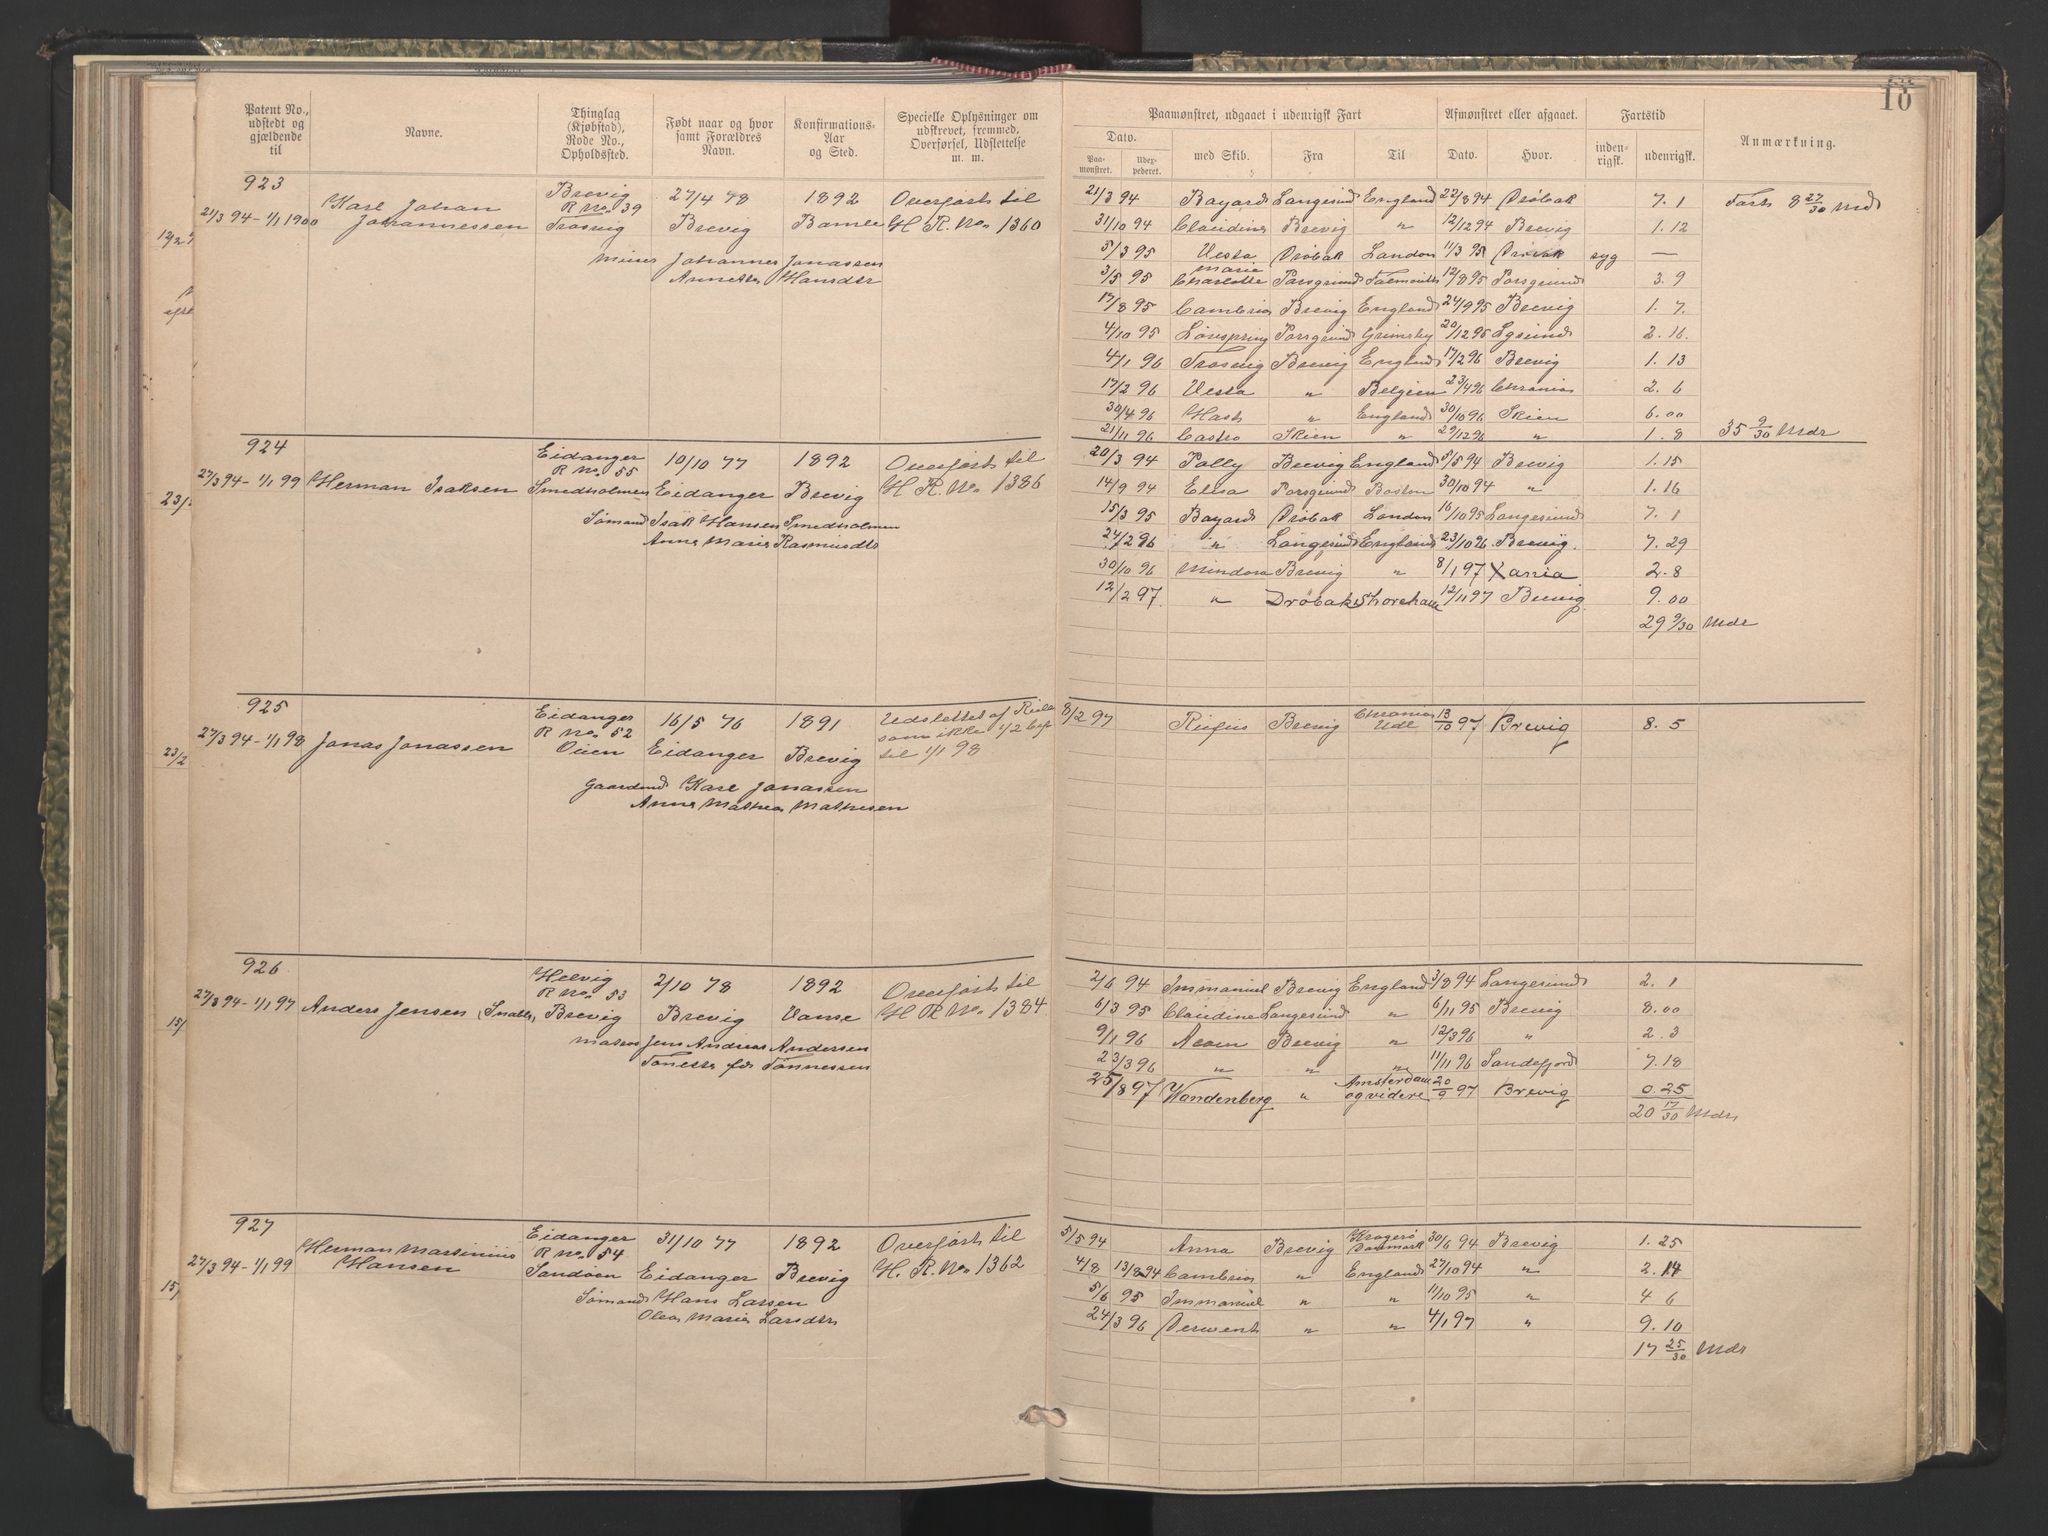 Patent No., udstedt og gjældende til
Navne.
Thinglag (Kjøbstad), Rode No., Opholdssted.
Født naar og hvor samt Forældres Navn.
Konfirmations-Aar og Sted.
Specielle Oplysninger om udskrevet, fremmed, Overførsel, Udslettelse m. m.
Paamønstret, udgaaet i udenrigsk Fart
Dato.
Paa-mønstret.
Udex-pederet.
med Skib.
Fra
Til
Afmønstret eller afgaaet.
Dato.
Hvor.
Fartstid
inden-rigsk.
udenrigsk.
Anmærkning.
923
21/3 94 - 1/1 1900
Karl Johan Johannessen
Brevig R No. 39 Trosvig
27/4 78 Brevig
1892 Bamle
Overført til H. R. No. 1360
Johannes Jonassen
Annette Hansdtr
21/3 94 Bayard Langesund England 22/8 94 Drøbak 7. 1 Fart 8 27/30 Md
31/10 94 Claudine Brevig " 12/12 94 Brevig 1. 12
5/3 95 Vesta Drøbak London 11/3 95 Drøbak syg —
3/5 95 Marie Charlotte Porsgrund Falmouth 12/8 95 Porsgrund 3. 9
17/8 95 Cambria Brevig England 24/9 95 Brevig 1. 7.
4/10 95 Løvspring Porsgrund Grimsby 20/12 95 Lgsund 2. 16.
4/1 96 Trosvig Brevig England 17/2 96 Brevig 1. 13
17/2 96 Vesta " Belgien 23/4 96 Chrania 2. 6
30/4 96 Hast " England 30/10 96 Skien 6. 00
21/11 96 Castro Skien " 29/12 96 " 1. 8 35 9/30 Mdr
924
27/3 94 - 1/1 99
Herman Isaksen
Eidanger R No. 55 Smedholmen
10/10 77 Eidanger
1892 Brevig
Overført til H. R. No. 1386
Sømand Isak Hansen Smedholmen
Anne Marie Rasmusdtr
20/3 94 Polly Brevig England 5/5 94 Brevig 1. 15
14/9 94 Elisa Porsgrund Boston 30/10 94 " 1. 16
15/3 95 Bayard Drøbak London 16/10 95 Langesund 7. 1
24/2 96 " Langesund England 23/10 96 Brevig. 7. 29
30/10 96 Mindora Brevig " 8/1 97 Xania. 2. 8
12/2 97. " Drøbak Shoreham 12/11 97 Brevig 9. 00
29 9/30 Mdr
925
27/3 94 - 1/1 98
Jonas Jonassen
Eidanger R No. 52 Øien
16/5 76 Eidanger
1891 Brevig
Udslettet af Rulle som ikke 1/2 bef. til 1/1 98
Gaardmd Karl Jonassen
Anne Mathea Mathisen
8/2 97 Rufus Brevig Chrania Udl 13/10 97 Brevig 8. 5
926
27/3 94 - 1/1 97
Anders Jensen
Helvig R No. 53 Brevig
2/10 78 Brevig
1892 Vanse
Overført til H. R. No. 1384
Matros Jens Andreas Andersen
Tonette fdt Tønnessen
2/6 94 Immanuel Brevig England 3/8 94 Langesund 2. 1
6/3 95 Claudine Langesund " 6/11 95 Brevig 8. 00
9/1 96 Acorn Brevig " 12/3 96 " 2. 3
23/3 96 " " " 11/11 96 Sandefjord 7. 18
25/8 97 Wandenberg " Amsterdam og videre 20/9 97 Brevig 0. 25
20 17/30 Mdr
927
27/3 94 - 1/1 99
Herman Marsinius Hansen
Eidanger R No. 54 Sandøen
31/10 77 Eidanger
1892 Brevig
Overført til H. R. No. 1362
Sømand Hans Larsen
Olea Marie Larsdtr
5/5 94 Anna Brevig Kragerø Danmark 30/6 94 Brevig 1. 25
4/8 13/8 94 Cambria " England 27/10 94 " 2. 14
5/6 95 Immanuel " " 11/10 95 " 4 6
24/3 96 Derwent " " 4/1 97 " 9. 10
17 25/30 Mdr